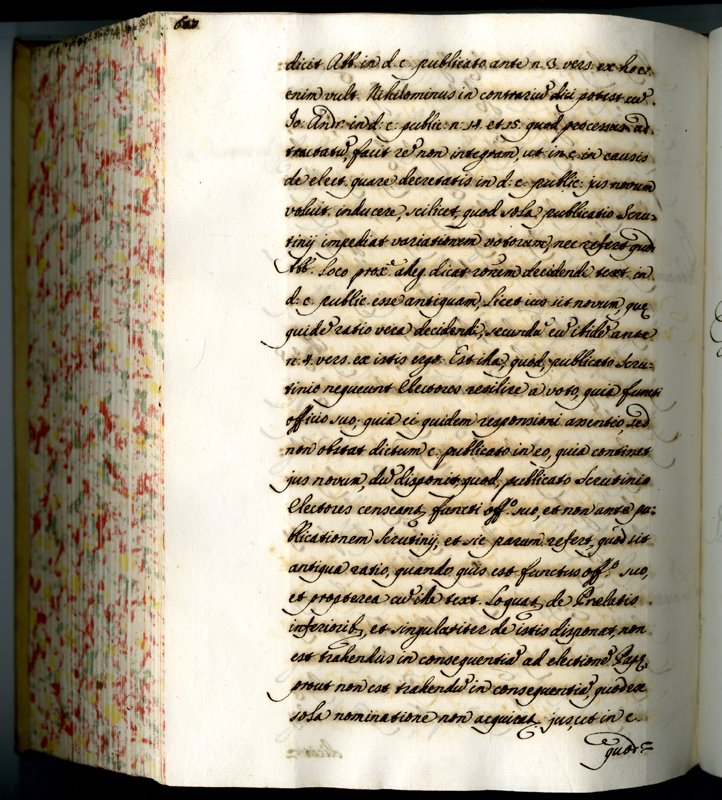 dicit Abb. in d. c. publicato ante n. 3. vers. ex hoc
enim vult. Nihilominus in contrariũ dici potest cũ
Jo: Andr. in d. c. public: n. 14. et 15. quod processus ad
tractatũ facit rẽ non integram, ut in c. in causis
de elect. quare decretatis in d: c. public: jus novum
voluit inducere, scilicet, quod sola publicatio Scru-
tinij impediat variationem votorum, nec refert quod
Abb. Loco prox.º dicat ronem decidendi text. in
d. c. public. esse antiquam, Licet ius sit novum, que
quidẽ ratio vera decidendi, secundũ eũ ibidẽ ante
n. 4. vers. ex istis ergo. Est illa, quod publicato Scru-
tinio nequeunt Electores resilire a voto, quia functi
officio suo; quia ei quidem responsioni assentio, sed
non obstat dictum c. publicato in eo, quia continet
jus novum, dũ disponit, quod publicato Scrutinio
Electores censeant functi off.º suo, et non ante pu-
blicationem Scrutinij, et sic parum refert, quod sit
antiqua ratio, quando quis est functus off.º suo,
et propterea cũ ille text. Loquat, de Prelatis
inferiorib, et singulariter de istis disponat, non
est trahendus in consequentiã ad electionẽ Pape,
prout non est trahendũ in consequentiã, quod ex
sola nominatione non acquirat jus, ut in c.
quod=